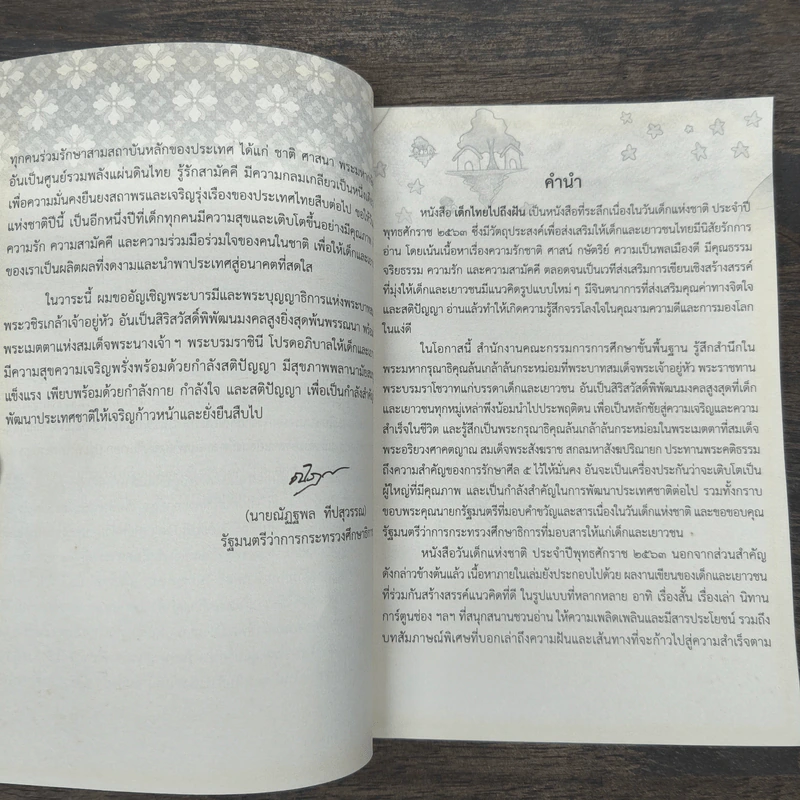 ทุกคนร่วมรักษาสามสถาบันหลักของประเทศ ได้แก่ ชาติ ศาสนา
อันเป็นศูนย์รวมพลังแผ่นดินไทย รู้รักสามัคคี มีความกลมเกลียวเป็นหนึ่ง
เพื่อความมั่นคงยืนยงสถาพรและเจริญรุ่งเรืองของประเทศไทยสืบต่อไป
แห่งชาติปีนี้ เป็นอีกหนึ่งปีที่เด็กทุกคนมีความสุขและเติบโตขึ้นอย่างมีคุณภาพ
ความรัก ความสามัคคี และความร่วมมือร่วมใจของคนในชาติ เพื่อให้เด็กและ
ของเราเป็นผลิตผลที่งดงามและนำพาประเทศสู่อนาคตที่สดใส
ในวาระนี้ ผมขออัญเชิญพระบารมีและพระบุญญาธิการแห่ง
พระวชิรเกล้าเจ้าอยู่หัว อันเป็นสิริสวัสดิ์พิพัฒนมงคลสูงยิ่งสุดพ้นพรรณนา
พระเมตตาแห่งสมเด็จพระนางเจ้า ฯ พระบรมราชินี โปรดอภิบาลให้เด็กและ
มีความสุขความเจริญพรั่งพร้อมด้วยกำลังสติปัญญา มีสุขภาพพลานามัย
แข็งแรง เพียบพร้อมด้วยกำลังกาย กำลังใจ และสติปัญญา เพื่อเป็นกำลังสำคัญ
พัฒนาประเทศชาติให้เจริญก้าวหน้าและยั่งยืนสืบไป
(นายณัฏฐพล ทีปสุวรรณ)
รัฐมนตรีว่าการกระทรวงศึกษาธิการ
คำนำ
หนังสือ เด็กไทยไปถึงฝัน เป็นหนังสือที่ระลึกเนื่องในวันเด็กแห่งชาติ ประจำปี
พุทธศักราช ๒๕๖๓ ซึ่งมีวัตถุประสงค์เพื่อส่งเสริมให้เด็กและเยาวชนไทยมีนิสัยรักการ
อ่าน โดยเน้นเนื้อหาเรื่องความรักชาติ ศาสน์ กษัตริย์ ความเป็นพลเมืองดี มีคุณธรรม
จริยธรรม ความรัก และความสามัคคี ตลอดจนเป็นเวทีส่งเสริมการเขียนเชิงสร้างสรรค์
ที่มุ่งให้เด็กและเยาวชนมีแนวคิดรูปแบบใหม่ ๆ มีจินตนาการที่ส่งเสริมคุณค่าทางจิตใจ
และสติปัญญา อ่านแล้วทำให้เกิดความรู้สึกจรรโลงใจในคุณงามความดีและการมองโลก
ในแง่ดี
ในโอกาสนี้ สำนักงานคณะกรรมการการศึกษาขั้นพื้นฐาน รู้สึกสำนึกใน
พระมหากรุณาธิคุณล้นเกล้าล้นกระหม่อมที่พระบาทสมเด็จพระเจ้าอยู่หัว พระราชทาน
พระบรมราโชวาทแก่บรรดาเด็กและเยาวชน อันเป็นสิริสวัสดิ์พิพัฒนมงคลสูงสุดที่เด็ก
และเยาวชนทุกหมู่เหล่าพึงน้อมนำไปประพฤติตน เพื่อเป็นหลักชัยสู่ความเจริญและความ
สำเร็จในชีวิต และรู้สึกเป็นพระกรุณาธิคุณล้นเกล้าล้นกระหม่อมในพระเมตตาที่สมเด็จ
พระอริยวงศาคตญาณ สมเด็จพระสังฆราช สกลมหาสังฆปริณายก ประทานพระคติธรรม
ถึงความสำคัญของการรักษาศีล ๕ ไว้ให้มั่นคง อันจะเป็นเครื่องประกันว่าจะเติบโตเป็น
ผู้ใหญ่ที่มีคุณภาพ และเป็นกำลังสำคัญในการพัฒนาประเทศชาติต่อไป รวมทั้งกราบ
ขอบพระคุณนายกรัฐมนตรีที่มอบคำขวัญและสารเนื่องในวันเด็กแห่งชาติ และขอขอบคุณ
รัฐมนตรีว่าการกระทรวงศึกษาธิการที่มอบสารให้แก่เด็กและเยาวชน
หนังสือวันเด็กแห่งชาติ ประจำปีพุทธศักราช ๒๕๖๓ นอกจากส่วนสำคัญ
ดังกล่าวข้างต้นแล้ว เนื้อหาภายในเล่มยังประกอบไปด้วย ผลงานเขียนของเด็กและเยาวชน
ที่ร่วมกันสร้างสรรค์แนวคิดที่ดี ในรูปแบบที่หลากหลาย อาทิ เรื่องสั้น เรื่องเล่า นิทาน
การ์ตูนช่อง ฯลฯ ที่สนุกสนานชวนอ่าน ให้ความเพลิดเพลินและมีสารประโยชน์ รวมถึง
บทสัมภาษณ์พิเศษที่บอกเล่าถึงความฝันและเส้นทางที่จะก้าวไปสู่ความสำเร็จตาม